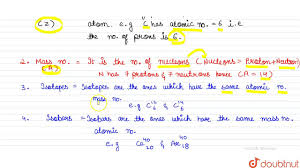 (Z) atom. e.g C has atomic no. = 6 i.e
the no. of prons is 6.
2. Mass no. = It is the no. of nucleons (Nucleons = Proton + Neutron)
(A) N has 7 protons & 7 neutrons hence (A = 14)
3. Isotopes = Isotopes are the ones which have the same atomic no.
mass no. e.g C¹²₆ & C¹⁴₆
4. Isobars = Isobars are the ones which have the same mass no.
atomic no.
e.g Ca⁴⁰₂₀ & Ar⁴⁰₁₈
doubtnut